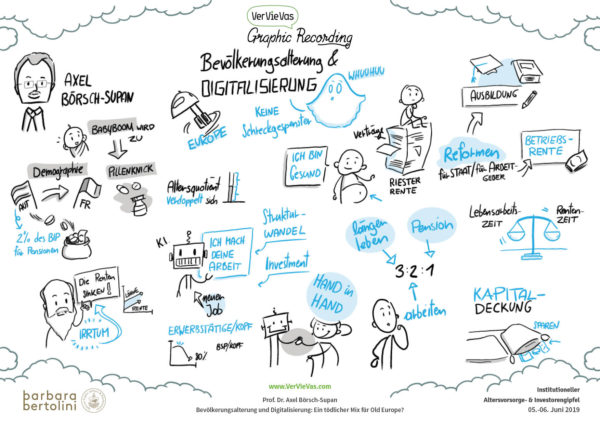 VerVieVas
Graphic Recording
Bevölkerungsalterung &
DIGITALISIERUNG
AXEL
BÖRSCH-SUPAN
BABYBOOM WIRD
ZU
PILLENKNICK
Demographie
FR
2% des BIP
für Pensionen
Die Renten
SINKEN!
IRRTUM
Löhne
RENTE
EUROPE
KEINE
Schreckgespenster
WHUUHUU
Altersquotient
verdoppelt sich
ICH BIN
GESUND
Verträge
RIESTER
RENTE
AUSBILDUNG
Reformen
für STAAT/für ARBEIT-
GEBER
BETRIEBS-
RENTE
K.I.
ICH MACH
DEINE
ARBEIT
Struktur-
WANDEL
Investment
neuen
Job
ERWERBSTÄTIGE/KOPF
BSP/KOPF
80%
HAND in
HAND
länger
leben
Pension
3:2:1
arbeiten
Lebensarbeits-
ZEIT
Renten-
ZEIT
KAPITAL-
DECKUNG
SPAREN
barbara
bertolini
www.VerVieVas.com
Prof. Dr. Axel Börsch-Supan
Bevölkerungsalterung und Digitalisierung: Ein tödlicher Mix für Old Europe?
Institutioneller
Altersvorsorge- & Investorengipfel
05.-06. Juni 2019